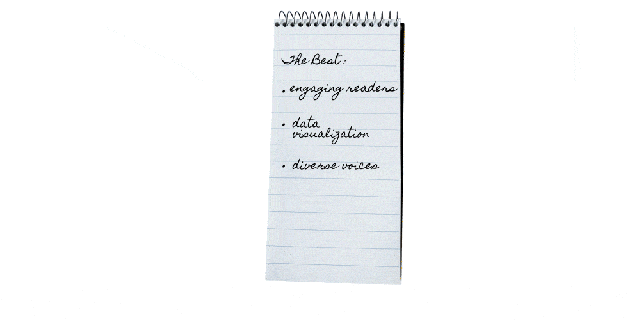 The Best:
• engaging readers
• data
visualization
• diverse voices